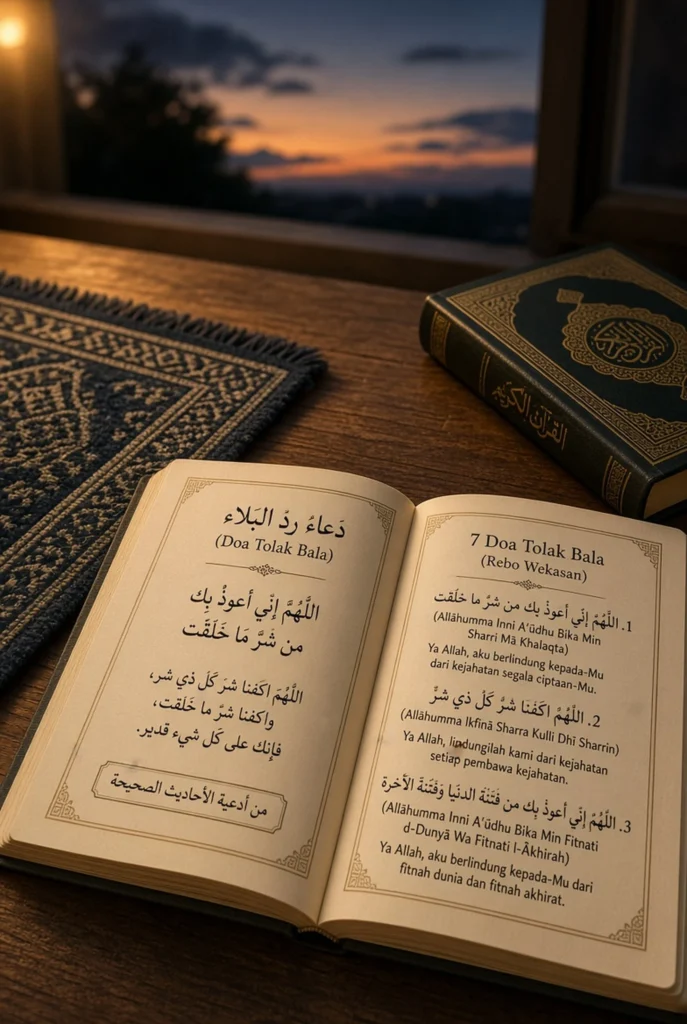 دَعاءُ ردُ البَلاء
(Doa Tolak Bala)
اللَّهُمَّ إنّي أعوذُ بِك
من شَرَّ مَا خَلَقَّت
اللَّهُمَ اكَفنا شرَ كَلَ ذي شر،
واكفنا شرَّ ما خَلَقت،
فإنك على كَل شيء قدير.
من أدعية الأحاديث الصحيحة
7 Doa Tolak Bala
(Rebo Wekasan)
1. اللَّهُمَّ إنَي أعوذ بك من شرَّ ما خلَقت
(Allāhumma Inni A'ūdhu Bika Min
Sharri Mā Khalaqta)
Ya Allah, aku berlindung kepada-Mu
dari kejahatan segala ciptaan-Mu.
2. اللَّهُمَّ اكَفنا شرُّ كَلُ ذي شرٍّ
(Allāhumma Ikfinā Sharra Kulli Dhī Sharrin)
Ya Allah, lindungilah kami dari kejahatan
setiap pembawa kejahatan.
3. اللَّهُمَّ إنَي أعوذُ بِك من فَتَنَة الدنيا وَفَتَنَة الآخرة
(Allāhumma Inni A'ūdhu Bika Min Fitnati
d-Dunyā Wa Fitnati l-Ākhirah)
Ya Allah, aku berlindung kepada-Mu dari
fitnah dunia dan fitnah akhirat.
القرآن الكريم